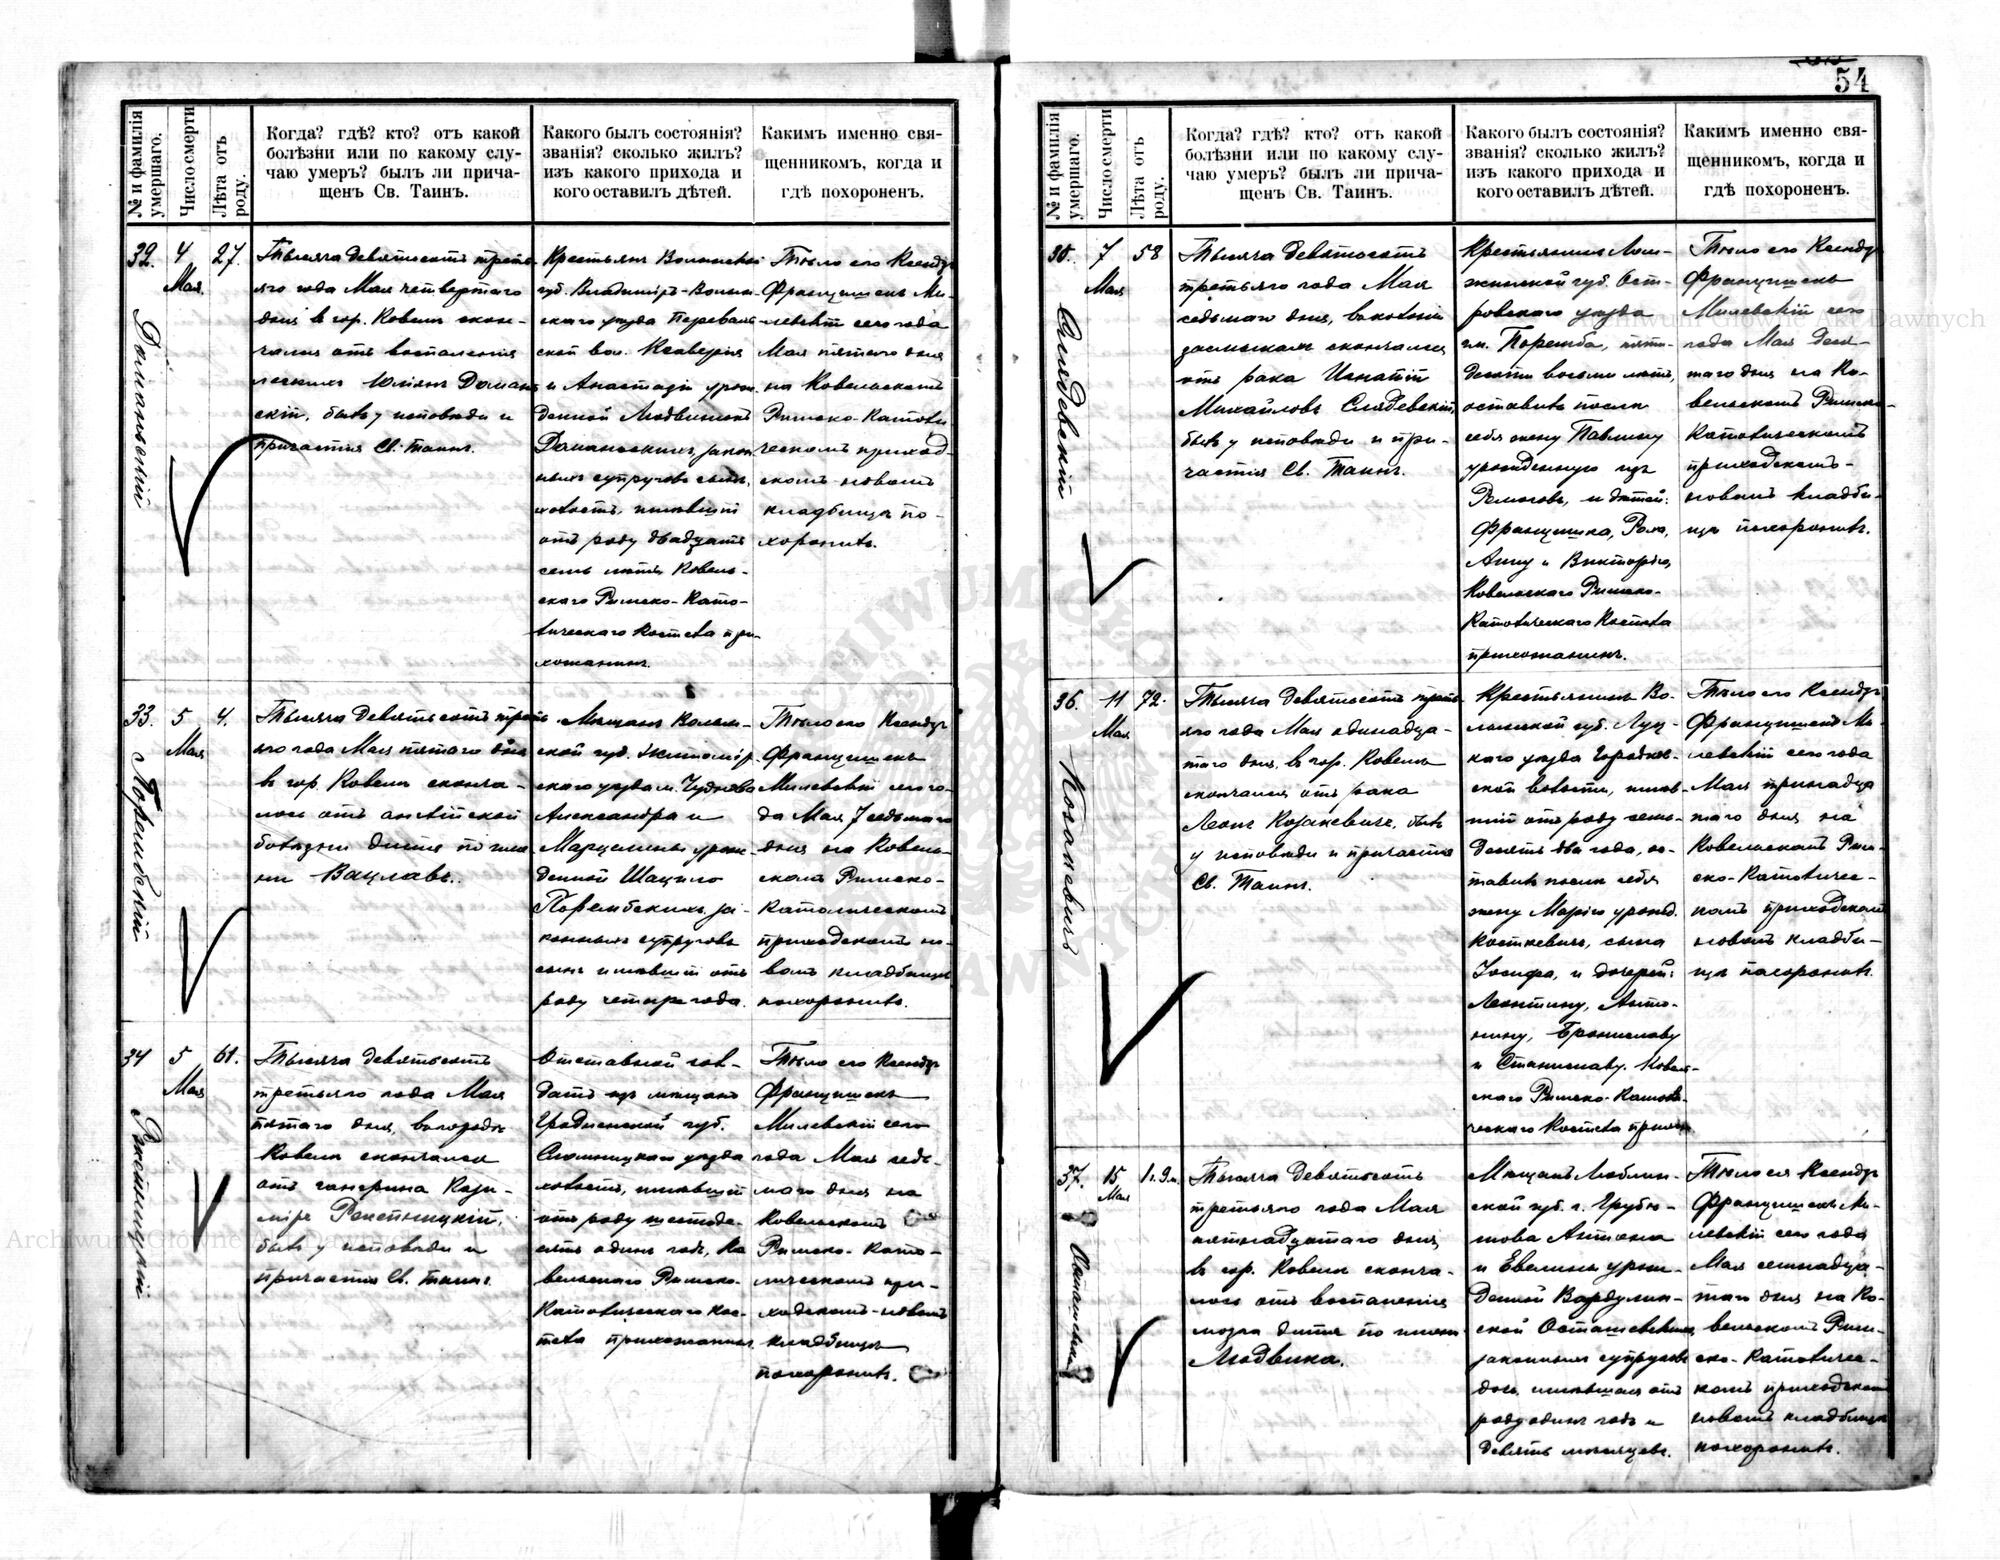 54
№ и фамилія умершаго.
Число смерти
Лѣта отъ роду.
Когда? гдѣ? кто? отъ какой
болѣзни или по какому слу-
чаю умеръ? былъ ли прича-
щенъ Св. Таинъ.
Какого былъ состоянія?
званія? сколько жилъ?
изъ какого прихода и
кого оставилъ дѣтей.
Какимъ именно свя-
щенникомъ, когда и
гдѣ похороненъ.
32.
4
Мая
27.
Доманьскій
Тысяча девятьсотъ треть-
яго года Мая четвертаго
дня в гор. Ковелѣ скон-
чался отъ воспаленія
легкихъ Юліянъ Доман-
скій, бывъ у исповѣди и
причастія Св. Таинъ.
Крестьянъ Волынской
губ. Владиміръ-Волын-
скаго уѣзда
ской вол. Ксаверія
и Анастазіи урож-
денной
Доманьскихъ, закон-
ныхъ супруговъ сынъ,
холостъ, имѣвшій
отъ роду двадцать
семь лѣтъ Ковель-
скаго Римско-Като-
лическаго Костела при-
хожанинъ.
Тѣло его Ксендзъ
Францишекъ Ми-
левскій сего года
Мая пятаго дня
на Ковельскомъ
Римско-Католи-
ческомъ приход-
скомъ новомъ
кладбищѣ по-
хоронилъ.
33.
5
Мая
4.
Порембскій
Тысяча девятьсотъ треть-
яго года Мая пятаго дня
в гор. Ковелѣ сконча-
лось отъ англійской
болѣзни дитя по име-
ни Вацлавъ.
Мѣщанъ Волын-
ской губ. Житомір-
скаго уѣзда м. Чуднова
Александра и
Марцелины урож-
денной Шацило
Порембскихъ, за-
конныхъ супруговъ
сынъ имѣвшій отъ
роду четыре года.
Тѣло его Ксендзъ
Францишекъ
Милевскій сего го-
да Мая 7 седьмаго
дня на Ковель-
скомъ Римско-
католическомъ
приходскомъ но-
вомъ кладбищѣ
похоронилъ.
34
5
Мая
61.
Тысяча девятьсотъ
третьяго года Мая
пятаго дня, в городѣ
Ковелѣ скончался
отъ гангрины Кази-
міръ
бывъ у исповѣди и
причастія Св. Таинъ.
Отставной сол-
датъ изъ мѣщанъ
Гродненской губ.
Слонимскаго уѣзда
холостъ, имѣвшій
отъ роду шестьде-
сятъ одинъ годъ, Ко
вельскаго Римско-
Католическаго Кос-
тела прихожанинъ
Тѣло его Ксендзъ
Францишекъ
Милевскій сего
года Мая седь-
маго дня на
Ковельскомъ
Римско-Като-
лическомъ при-
ходскомъ новомъ
кладбищѣ
похоронилъ.
№ и фамилія умершаго.
Число смерти
Лѣта отъ роду.
Когда? гдѣ? кто? отъ какой
болѣзни или по какому слу-
чаю умеръ? былъ ли прича-
щенъ Св. Таинъ.
Какого былъ состоянія?
званія? сколько жилъ?
изъ какого прихода и
кого оставилъ дѣтей.
Какимъ именно свя-
щенникомъ, когда и
гдѣ похороненъ.
35.
7
Мая
58
Слядевскій
Тысяча девятьсотъ
третьяго года Мая
седьмаго дня,
скончался
отъ рака Игнатій
Михайловъ Слядевскій
бывъ у исповѣди и при-
частія Св. Таинъ.
Крестьянинъ Лом-
жинской губ. Ост-
ровскаго уѣзда
гм. Поремба, пять-
десяти восьми лѣтъ,
оставивъ послѣ
себя жену Павлину
урожденную изъ
и дѣтей:
Францишка,
Анну и Викторію,
Ковельскаго Римско-
Католическаго Костела
прихожанинъ.
Тѣло его Ксендзъ
Францишекъ
Милевскій сего
года Мая деся-
таго дня на Ко-
вельскомъ Римско-
Католическомъ
приходскомъ-
новомъ кладби-
щѣ похоронилъ.
36.
11
Мая
72.
Козакевичъ
Тысяча девятьсотъ треть-
яго года Мая одинадца-
таго дня, в гор. Ковелѣ
скончался отъ рака
Леонъ Козакевичъ, бывъ
у исповѣди и причастія
Св. Таинъ.
Крестьянинъ Во-
лынской губ. Луц-
каго уѣзда Городков-
ской волости, имѣв-
шій отъ роду семь-
десятъ два года, ос-
тавивъ послѣ себя
жену Марію урожд.
Косткевичъ, сына
Іосифа, и дочерей:
Леонтину, Анто-
нину, Брониславу
и Станиславу. Ковель-
скаго Римско-Католи-
ческаго Костела прихож.
Тѣло его Ксендзъ
Францишекъ Ми-
левскій сего года
Мая тринадца
таго дня на
Ковельскомъ Рим-
ско-Католичес-
комъ приходскомъ
новомъ кладби-
щѣ похоронилъ.
37.
15
Мая
1 г. 9 м.
Тысяча девятьсотъ
третьяго года Мая
пятнадцатаго дня,
в гор. Ковелѣ сконча-
лось отъ воспаленія
мозга дитя по имени
Людвика.
Мѣщанъ Люблин-
ской губ. г. Грубе-
шова Антона
и Евелины урож-
денной
ской Осташевскихъ,
законныхъ супруговъ
дочь, имѣвшая отъ
роду одинъ годъ и
девять мѣсяцевъ.
Тѣло ея Ксендзъ
Францишекъ Ми-
левскій сего года
Мая семнадца-
таго дня на Ко-
вельскомъ Рим-
ско-Католичес-
комъ приходскомъ
новомъ кладбищѣ
похоронилъ.
Archiwum Główne Akt Dawnych
Archiwum Główne Akt Dawnych
ARCHIWUM GŁÓWNE AKT DAWNYCH